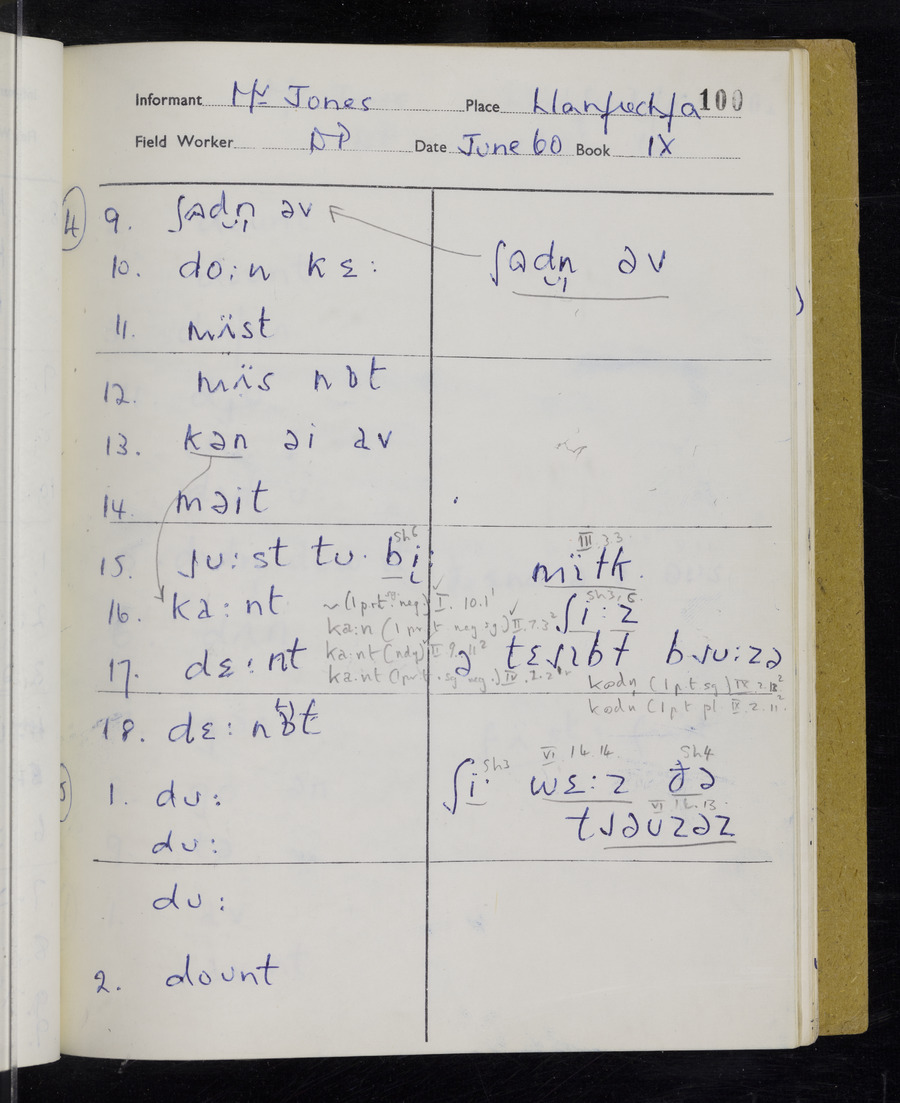 Informant Mr Jones Place Llanfrechfa 100
Field Worker DP Date June 60 Book IX
4 9. ʃadn̩ əv
ʃadn̩ əv
10. do:n kɛ:
11. mïst
12. mïs nɒt
13. kan əi əv
14. məit
15. ɹu:st tu· bi:
Sh6
III.3.3
mïɫk.
16. ka:nt
~(1prt. sg neg) I. 10.1¹
Sh3,5
ʃi:z
ka:n (1 prt neg sg) II.7.3²
17. dɛ:nt
ka:nt (ndg) II 9.11²
ə tɛɹɪbɫ bɹu:zə
ka:nt (1prt. sg neg.) IV.2.2
kodn̩ (1pt sg) IX.2.12²
kodn (1pt pl IX.2.11²
18. dɛ:nɒt
5 1. du:
Sh3 VI 14 14. Sh4
ʃi: wɛ:z ðə
du:
VI 14.13.
tɹəuzəz
du:
2. dount